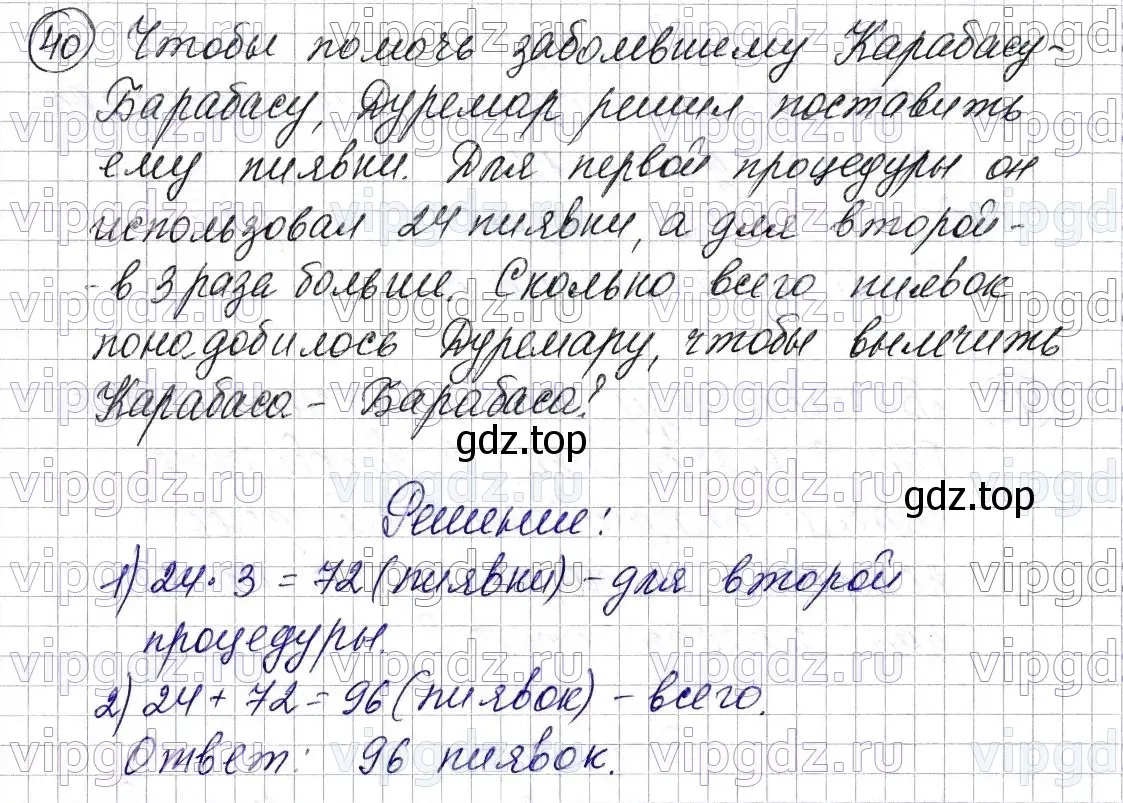 40 Чтобы помочь заболевшему Карабасу-
Барабасу, Дуремар решил поставить
ему пиявки. Для первой процедуры он
использовал 24 пиявки, а для второй -
- в 3 раза больше. Сколько всего пиявок
понадобилось Дуремару, чтобы вылечить
Карабаса - Барабаса?
gdz.top
gdz.top
Решение:
1) 24 · 3 = 72 (пиявки) - для второй
процедуры.
2) 24 + 72 = 96 (пиявок) - всего.
Ответ: 96 пиявок.
vipgdz.ru